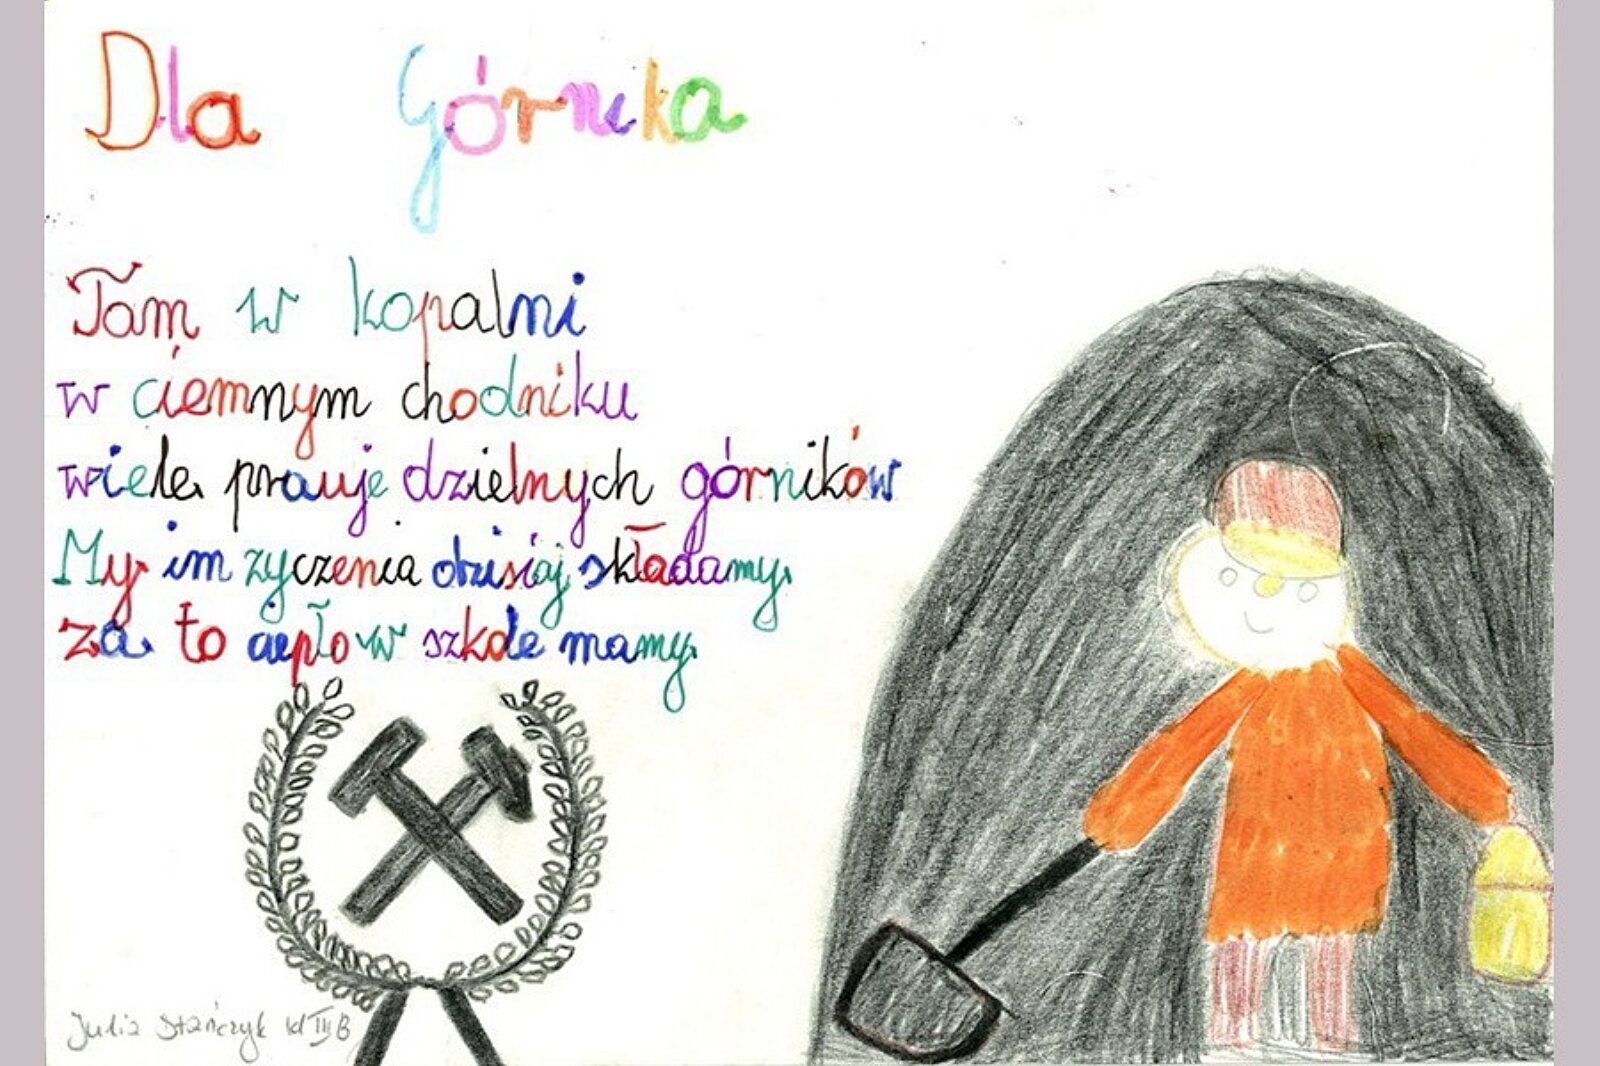 Dla Górnika
Tam w kopalni
w ciemnym chodniku
wiele pracuje dzielnych górników
My im zyczenia dzisiaj składamy
za to ciepło w szkole mamy.
Julia Stańczyk kl III B